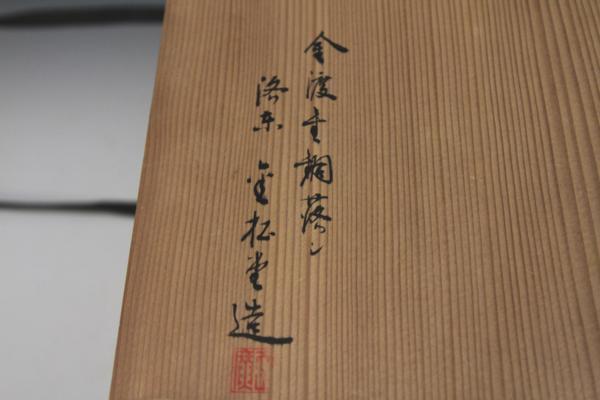 金渡 銅落シ
洛東 金松堂造